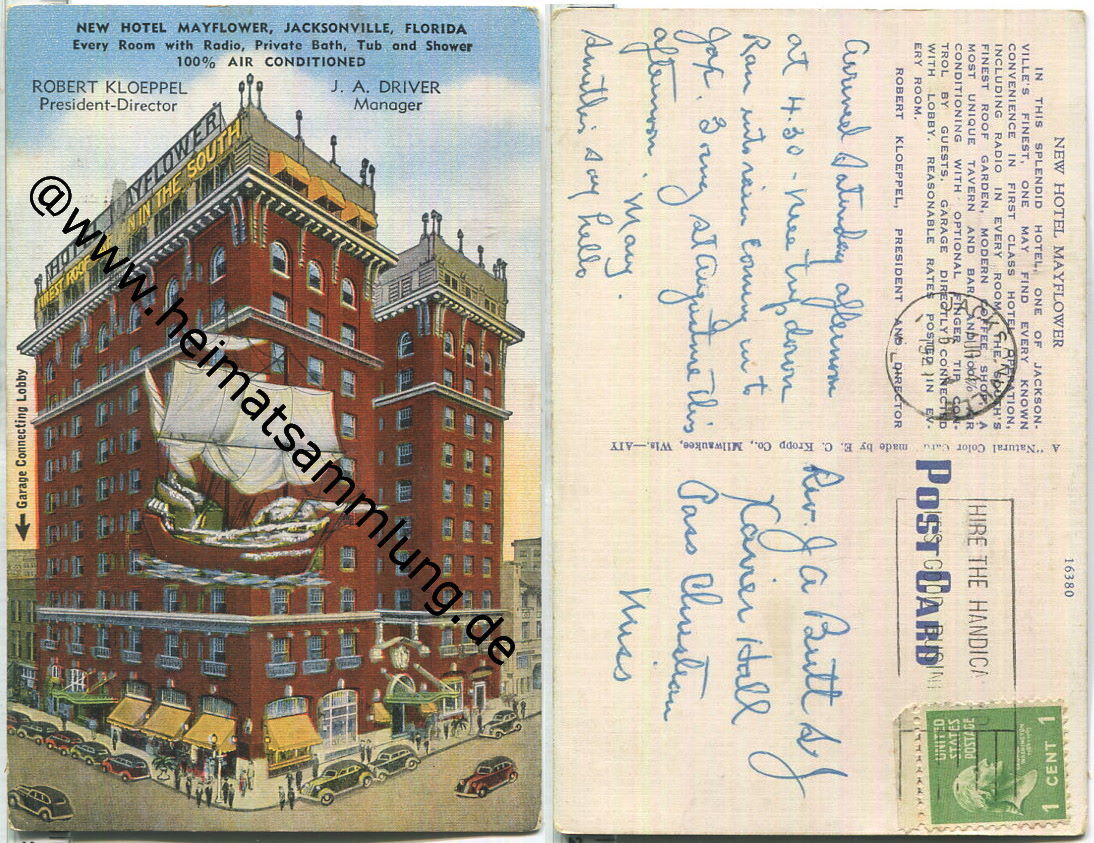 NEW HOTEL MAYFLOWER, JACKSONVILLE, FLORIDA
Every Room with Radio, Private Bath, Tub and Shower
100% AIR CONDITIONED
ROBERT KLOEPPEL
President-Director
J. A. DRIVER
Manager
HOTEL MAYFLOWER
FINEST ROOF IN THE SOUTH
Garage Connecting Lobby
@www.heimatsammlung.de
NEW HOTEL MAYFLOWER
IN THIS SPLENDID HOTEL, ONE OF JACKSON-
VILLE'S FINEST, ONE MAY FIND EVERY KNOWN
CONVENIENCE IN FIRST CLASS HOTEL OPERATION,
INCLUDING RADIO IN EVERY ROOM, THE SOUTH'S
FINEST ROOF GARDEN, MODERN COFFEE SHOP, A
MOST UNIQUE TAVERN AND BAR AND
CONDITIONING WITH OPTIONAL FINGER TIP CON-
TROL BY GUESTS. GARAGE DIRECTLY CONNECTED
WITH LOBBY. REASONABLE RATES POSTED IN EV-
ERY ROOM.
ROBERT KLOEPPEL, PRESIDENT AND DIRECTOR
Arrived Saturday afternoon
at 4.30 - Nice trip down
Ran into rain coming into
Jax. Doing St Augustine this
afternoon. Mary.
Smitties say hello
A "Natural Color Card" made by E. C. Kropp Co., Milwaukee, Wis.—AIY
16380
POST CARD
HIRE THE HANDICA
IT'S GOOD BUSIN
UNITED
STATES
POSTAGE
1 CENT 1
Rev. J A Butt SJ
Xavier Hall
Pass Christian
Miss